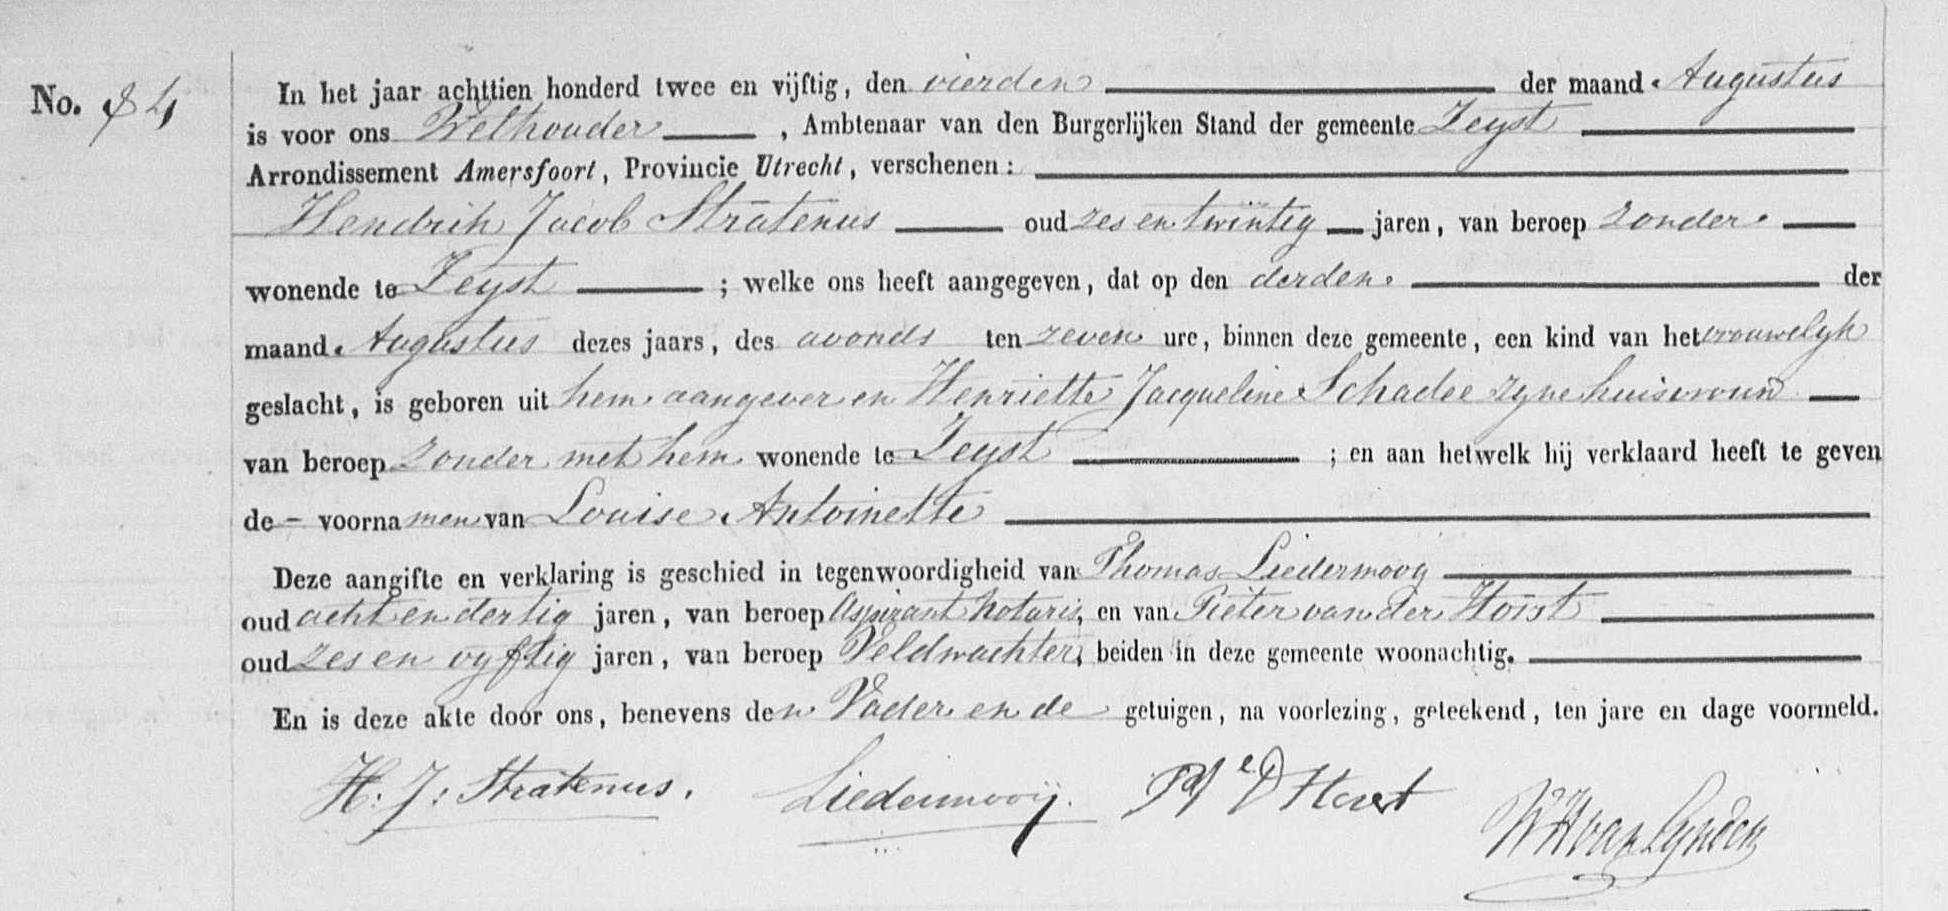 No. 84
In het jaar achttien honderd twee en vijftig, den vierden der maand Augustus
is voor ons Wethouder, Ambtenaar van den Burgerlijken Stand der gemeente Zeyst
Arrondissement Amersfoort, Provincie Utrecht, verschenen:
Hendrik Jacob Stratenus oud zes en twintig jaren, van beroep zonder
wonende te Zeyst; welke ons heeft aangegeven, dat op den derden der
maand Augustus dezes jaars, des avonds ten zeven ure, binnen deze gemeente, een kind van het vrouwelyk
geslacht, is geboren uit hem aangever en Henriette Jacqueline Schadee zyne huisvrouw
van beroep zonder met hem wonende te Zeyst; en aan hetwelk hij verklaard heeft te geven
de - voornamen van Louise Antoinette
Deze aangifte en verklaring is geschied in tegenwoordigheid van Thomas Liedermooy
oud acht en dertig jaren, van beroep Aspirant Notaris, en van Pieter van der Horst
oud zes en vyftig jaren, van beroep Veldwachter, beiden in deze gemeente woonachtig.
En is deze akte door ons, benevens den Vader en de getuigen, na voorlezing, geteekend, ten jare en dage voormeld.
H: J: Stratenus. Liedermooij. Horst W H van Lynden